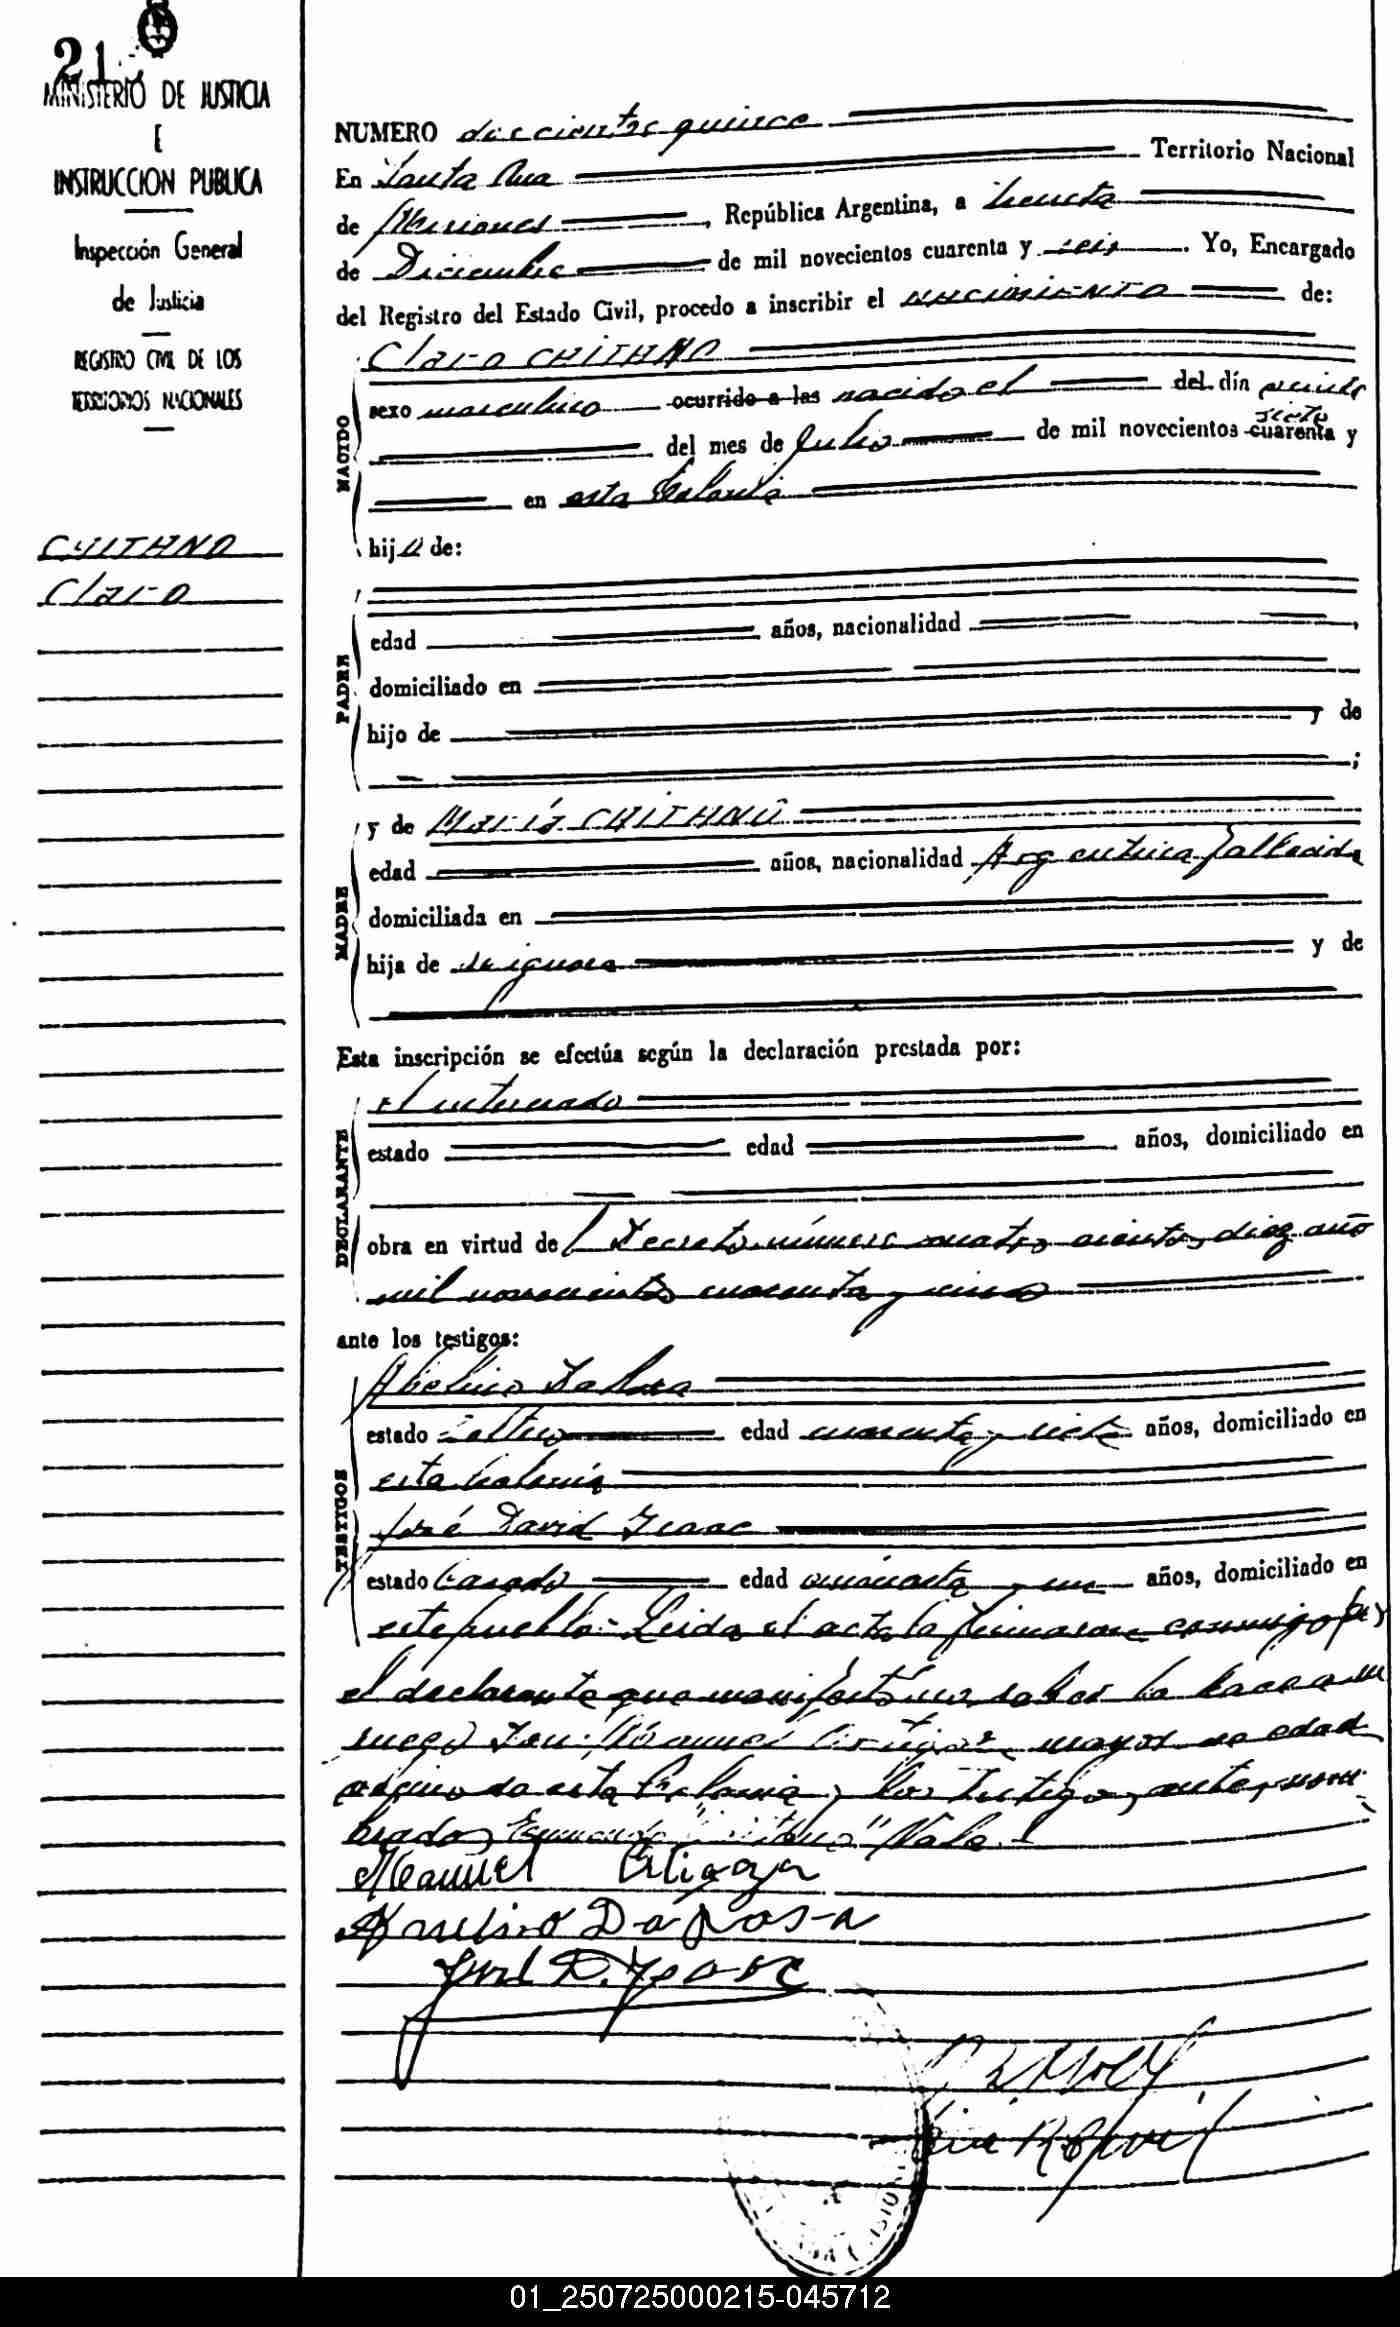 21
MINISTERIO DE JUSTICIA
E
INSTRUCCION PUBLICA
Inspección General
de Justicia
REGISTRO CIVIL DE LOS
TERRITORIOS NACIONALES
CAITANO
Claro
NUMERO doscientos quince
En Santa Ana Territorio Nacional
de Misiones, República Argentina, a treinta
de Diciembre de mil novecientos cuarenta y seis. Yo, Encargado
del Registro del Estado Civil, procedo a inscribir el nacimiento de:
NACIDO
Claro CAITANO
sexo masculino ocurrido a las nacido el del día veinte
siete
del mes de Julio de mil novecientos cuarenta y
en esta Colonia
hijo de:
PADRE
edad años, nacionalidad ,
domiciliado en
hijo de y de
;
MADRE
y de María CAITANO
edad años, nacionalidad Argentina fallecida
domiciliada en
hija de se ignora y de
Esta inscripción se efectúa según la declaración prestada por:
DECLARANTE
el interesado
estado edad años, domiciliado en
obra en virtud del Decreto número cuatro cientos diez año
mil novecientos cuarenta y cinco
ante los testigos:
TESTIGOS
Abelino Da Rosa
estado soltero edad cuarenta y siete años, domiciliado en
esta Colonia
José David Isaac
estado Casado edad cuarenta y un años, domiciliado en
este pueblo. Leida el acta la firmaron conmigo por
el declarante que manifestó no saber lo hace a su
ruego Don Manuel mayor de edad
vecino de esta Colonia y los testigos ante nom-
brados Vale.
Manuel
Avelino Da Rosa
José D. Isaac
01_250725000215-045712